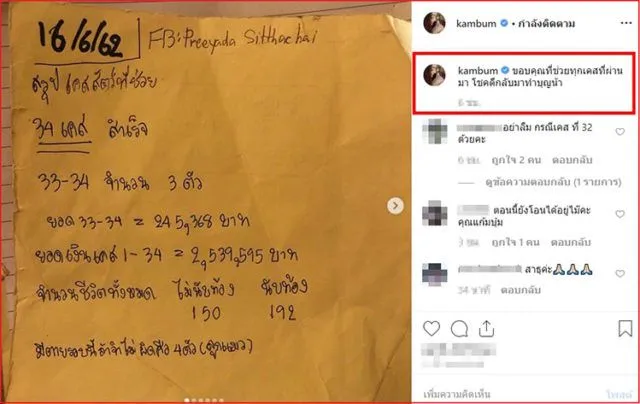 16/6/62
FB:Preeyada Sitthachai
สรุป เคสสัตว์ที่ช่วย
34 เคส สำเร็จ
33-34 จำนวน 3 ตัว
ยอด 33-34 = 245,368 บาท
ยอดเงินเคส 1-34 = 2,539,595 บาท
จำนวนชีวิตทั้งหมด ไม่นับท้อง นับท้อง
150 192
มีตายรอบนี้ถ้าจำไม่ผิดคือ 4 ตัว (ลูกแมว)
kambum • กำลังติดตาม
kambum ขอบคุณที่ช่วยทุกเคสที่ผ่าน
มา โชคดีกลับมาทำบุญน้า
6 ชม.
อย่าลืม กรณีเคส ที่ 32
ด้วยคะ
6 ชม. ถูกใจ 2 คน ตอบกลับ
ดูข้อความตอบกลับ (1 รายการ)
ตอนนี้ยังโอนได้อยู่ไม้คะ
คุณแก้มบุ๋ม
ถูกใจ 1 คน ตอบกลับ
สาธุค่ะ🙏🙏🙏
34 นาที ตอบกลับ
เพิ่มความคิดเห็น
โพสต์